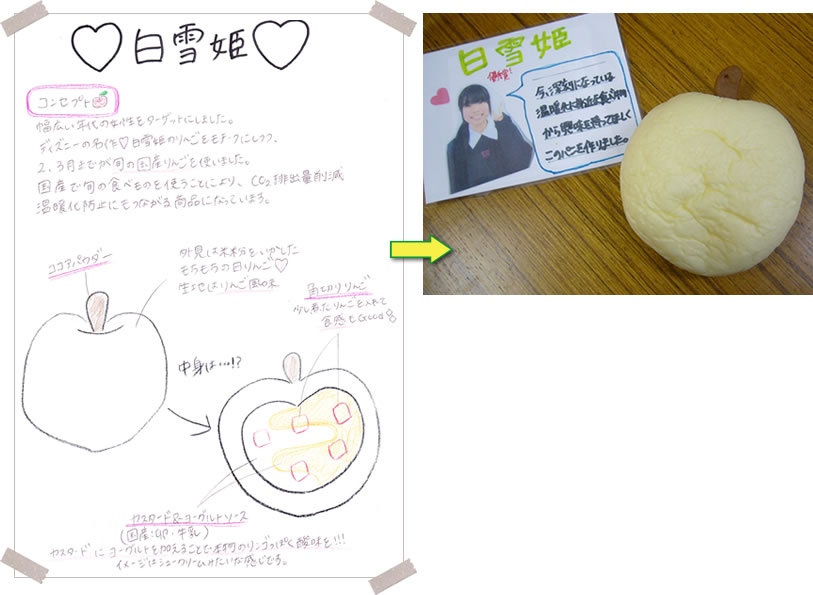 ♡白雪姫♡
コンセプト
幅広い年代の女性をターゲットにしました。
ディズニーの名作♡白雪姫のりんごをモチーフにしつつ、
2、3月までが旬の国産りんごを使いました。
国産で旬の食べものを使うことにより、CO₂排出量削減
温暖化防止にもつながる商品になっています。
ココアパウダー
外見は米粉をいかした
もちもちの白りんご♡
生地はりんご風味
角切りりんご
少し煮たりんごを入れて
食感もGood
中身は…!?
カスタード&ヨーグルトソース
(国産:卵・牛乳)
カスタードにヨーグルトを加えることで本物のリンゴっぽく酸味を!!!
イメージはシュークリームみたいな感じです。
白雪姫
優秀賞!
今、深刻になっている
温暖化に
から興味を持ってほしく
このパンを作りました。